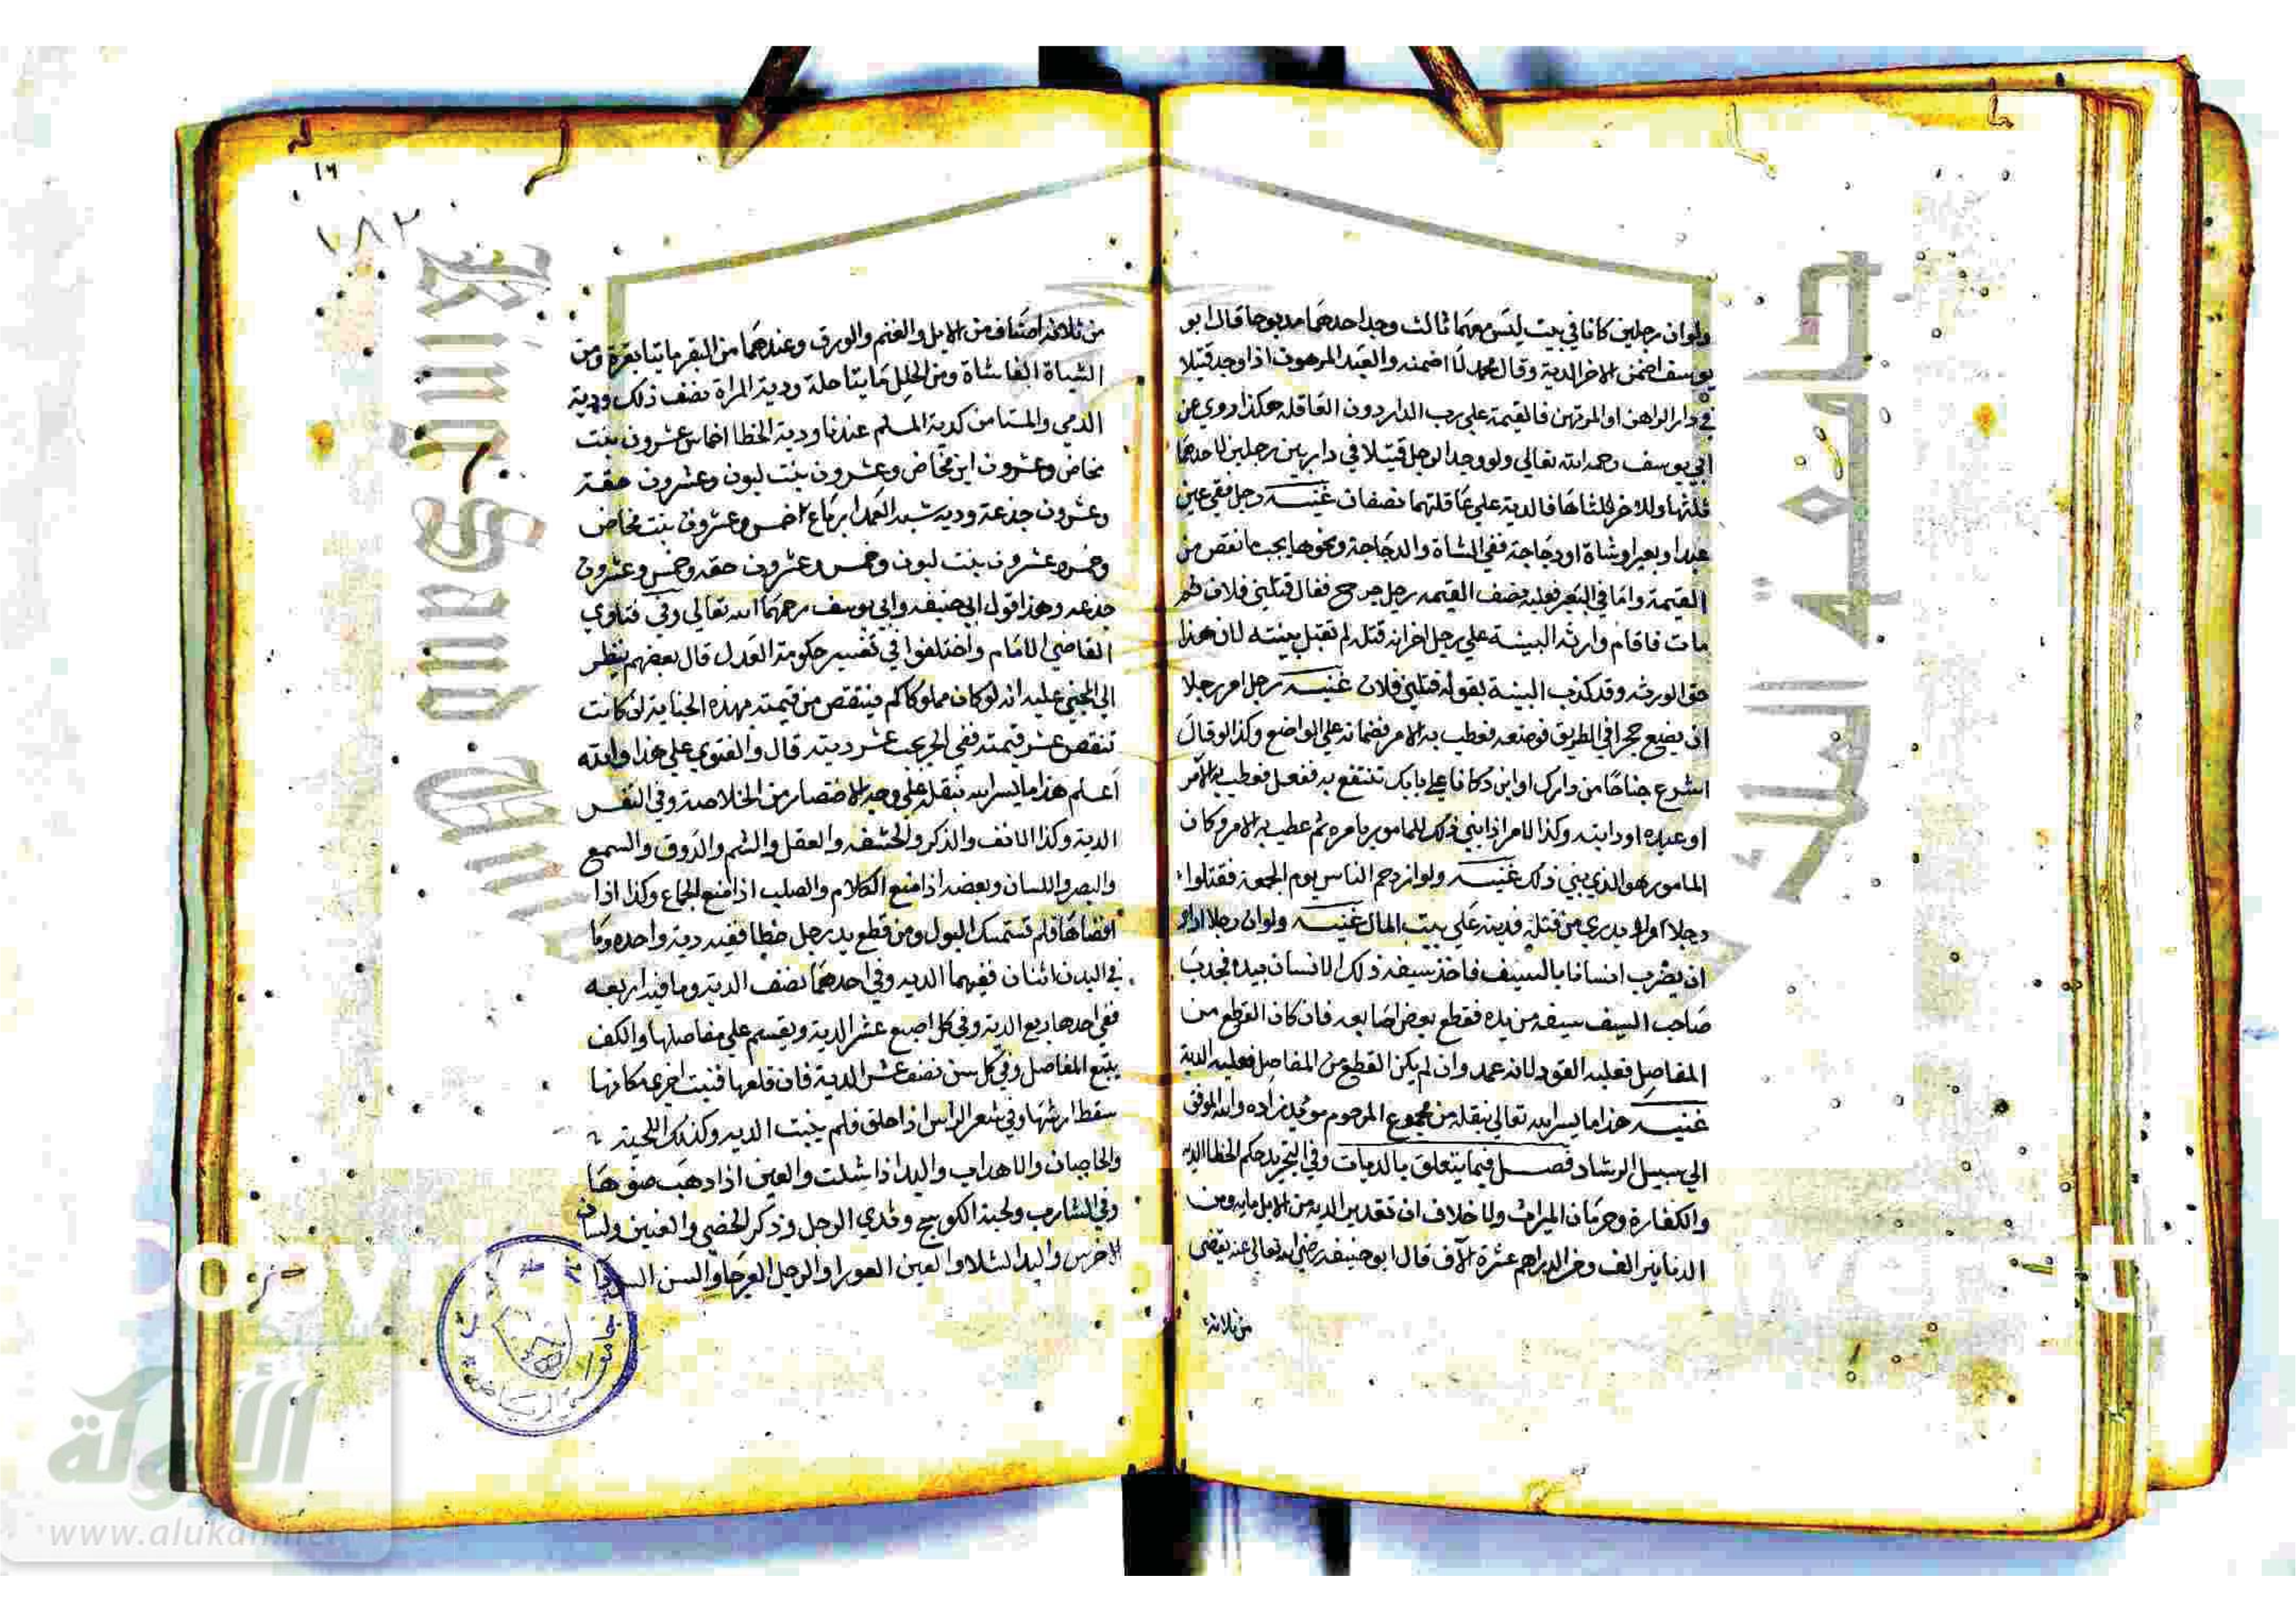 ولوان رجلين كانا في بيت ليس معهما ثالث وجد احدهما مذبوحا قال ابو
يوسف اضمن الاخر الدية وقال محمد لا اضمنه والعبد المرهون اذا وجد قتيلا
في دار الراهن او المرتهن فالقيمة على رب الدار دون العاقله هكذا روي عن
ابي يوسف رحمه الله تعالى ولو وجد الرجل قتيلا في دار بين رجلين لاحدهما
ثلثها وللاخر ثلثاها فالدية علي عاقلتهما نصفان غنيه رجل فقي عين
عبد او بعير او شاة او دجاجة ففي الشاة والدجاجة ونحوها يجب ما نقص من
القيمة واما في البعير فعليه نصف القيمه رجل جرح فقال قتلني فلان ثم
مات فاقام وارثه البينة علي رجل اخر انه قتله لم تقبل بينته لان هذا
حق الورثه وقد كذب البينة بقوله قتلني فلان غنيه رجل امر رجلا
ان يضع حجرا في الطريق فوضعه فعطب به الامر فضمانه علي الواضع وكذا لو قال
اشرع جناحا من دارك او ابن دكانا علي بابك تنتفع به ففعل فعطب به الامر
او عبده او دابته وكذا الامر اذا بني ذلك للمامور بامره ثم عطب به الامر وكان
المامور هو الذي بني ذلك غنيه ولو ازدحم الناس يوم الجمعة فقتلوا
رجلا يدري من قتله فديته علي بيت المال غنيه ولوان رجلا اراد
ان يضرب انسانا بالسيف فاخذ سيفه ذلك الانسان بيده فجذب
صاحب السيف سيفه من يده فقطع بعض اصابعه فان كان القطع من
المفاصل فعليه القود لانه عمد وان لم يكن القطع من المفاصل فعليه الدية
غنيه هذا ما يسر الله تعالي بنقله من مجموع المرحوم مؤيد زاده والله الموفق
الي سبيل الرشاد فصل فيما يتعلق بالديات وفي التجريد حكم الخطا الديه
والكفارة وحرمان الميراث ولا خلاف ان تقدير الديه من الابل مايه ومن
الدنانير الف ومن الدراهم عشرة الاف قال ابو حنيفه رضي الله تعالي عنه يقضى
من ثلاثة
١٦
١٨٢
من ثلاثة اصناف من الابل والغنم والورق وعندهما من البقر مايتا بقرة ومن
الشياة الفا شاة ومن الحلل مايتا حلة ودية المراة نصف ذلك ودية
الذمي والمستامن كدية المسلم عندنا ودية الخطا اخماس عشرون بنت
مخاض وعشرون ابن مخاض وعشرون بنت لبون وعشرون حقة
وعشرون جذعة وديه شبه العمد ارباع خمس وعشرون بنت مخاض
وخمس وعشرون بنت لبون وخمس وعشرون حقه وخمس وعشرون
جذعه وهذا قول ابي حنيفه وابي يوسف رحمهما الله تعالي وفي فتاوي
القاضي الامام واختلفوا في تفسير حكومة العدل قال بعضهم ينظر
الي المجني عليه انه لو كان مملوكا كم ينتقص من قيمته بهذه الجناية ان كانت
تنقص عشر قيمته ففي الحر يجب عشر ديته قال والفتوي علي هذا والله
اعلم هذا ما يسر الله بنقله علي وجه الاختصار من الخلاصة وفي النفس
الدية وكذا الانف والذكر والحشفه والعقل والشم والذوق والسمع
والبصر واللسان وبعضه اذا منع الكلام والصلب اذا منع الجماع وكذا اذا
افضاها فلم تستمسك البول ومن قطع يد رجل خطا ففيه دية واحده وما
في البدن اثنان ففيهما الديه وفي احدهما نصف الدية وما فيه اربعه
ففي احدها ربع الدية وفي كل اصبع عشر الدية ويقسم علي مفاصلها والكف
يتبع المفاصل وفي كل سن نصف عشر الدية فان قلعها فنبت اخري مكانها
سقط ارشها وفي شعر الراس اذا حلق فلم ينبت الديه وكذلك اللحية
والحاجبان والاهداب واليد اذا شلت والعين اذا ذهب ضوها
وفي الشارب ولحية الكوسج وثدي الرجل وذكر الخصي والعنين ولسان
الاخرس واليد الشلا والعين العورا والرجل العرجا والسن السودا
جامعة الملك سعود
King Saud University
جامعة الرياض
الألوكة
www.alukah.net